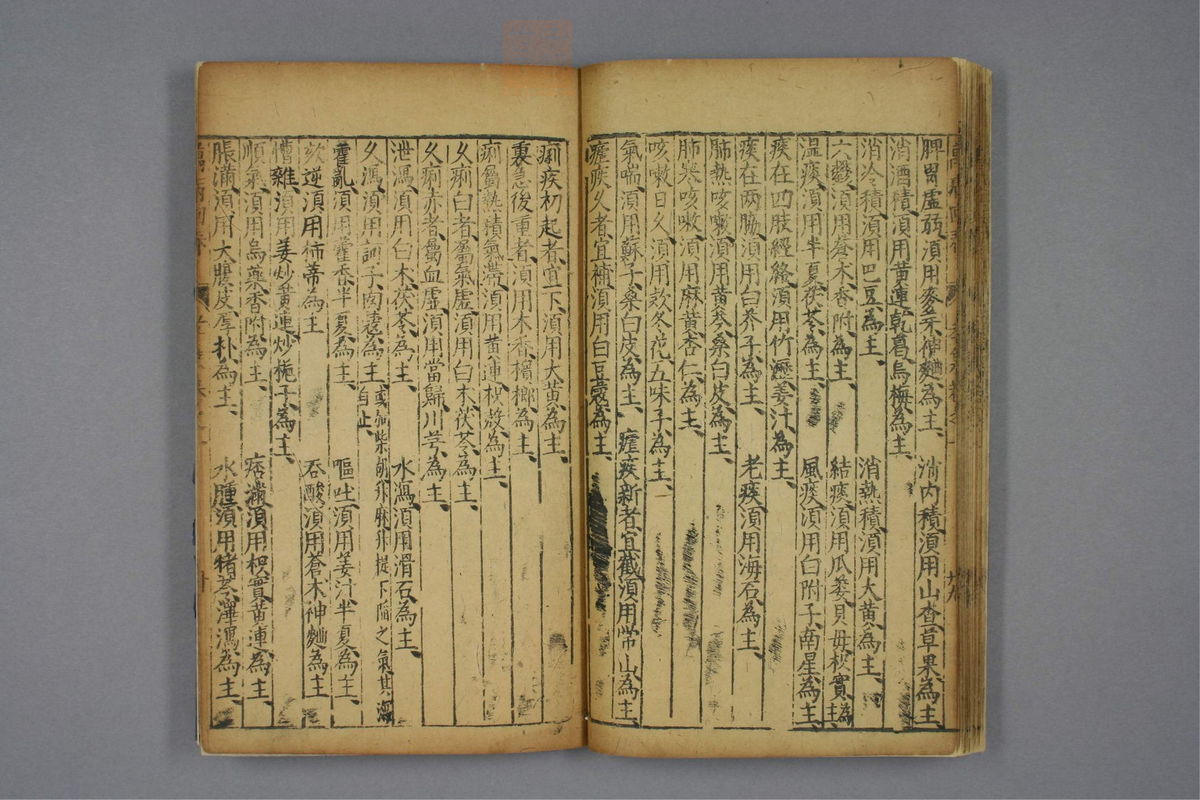 脾胃虛弱須用麥芽神麯為主 消肉積須用山查草果為主
消酒積須用黃連乾葛烏梅為主
消冷積須用巴豆為主 消熱積須用大黃為主
六鬱須用蒼木香附為主 結痰須用瓜蔞貝母枳實為主
濕痰須用半夏茯苓為主 風痰須用白附子南星為主
痰在四肢經絡須用竹瀝姜汁為主
痰在两脇須用白芥子為主 老痰須用海石為主
肺熱咳嗽須用黃芩桑白皮為主
肺寒咳嗽須用麻黃杏仁為主
咳嗽日久須用款冬花五味子為主
氣喘須用蘇子桑白皮為主 瘧疾新者宜截須用常山為主
瘧疾久者宜補須用白豆蔻為主
痢疾初起者宜下須用大黃為主
裏急後重者須用木香檳榔為主
痢屬熱積氣滯須用黃連枳殼為主
久痢白者屬氣虛須用白木茯苓為主
久痢赤者屬血虛須用當歸川芎為主
泄瀉須用白木茯苓為主 水瀉須用滑石為主
久瀉須用訶子肉蔻為主或加柴胡升麻升提下陷之氣其瀉自止
霍亂須用藿香半夏為主 嘔吐須用姜汁半夏為主
欬逆須用柿蒂為主 吞酸須用蒼木神麯為主
嘈雜須用姜炒黃連炒梔子為主
順氣須用烏藥香附為主 痞滿須用枳實黃連為主
脹滿須用大腹皮厚朴為主 水腫須用猪苓澤瀉為主